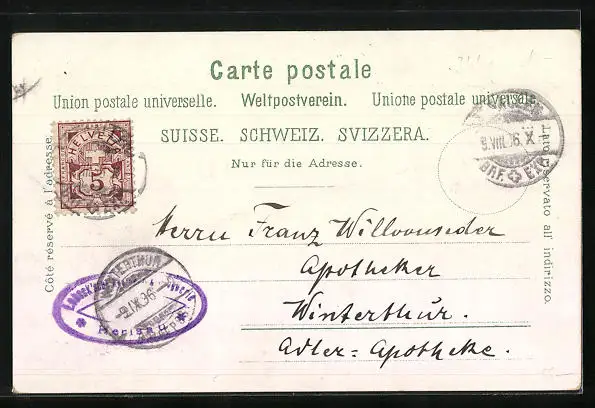 Carte postale
Union postale universelle. Weltpostverein. Unione postale universale.
SUISSE. SCHWEIZ. SVIZZERA.
Nur für die Adresse.
Côté réservé à l'adresse.
Lato riservato all indirizzo.
HELVETIA
5
9.VIII.96.X
BRF. EXP.
WINTERTHUR
9.IX.96
Herisau
Herrn Franz
Apotheker
Winterthur.
Adler=Apotheke.